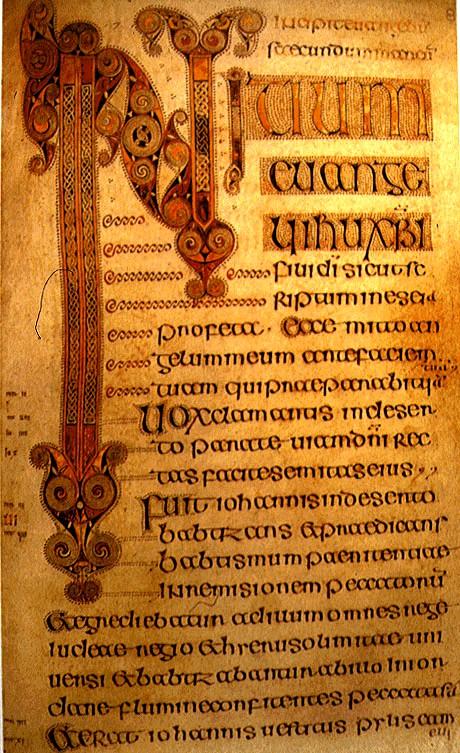 Incipit euangeliū
secundum marcū
INITIUM
euange
lii ihu xpi
filii dī sicut sc
riptum in eseia
profeta · Ecce mitto an
gelum meum ante faciem
tuam qui praeparabit uiā
Uox clamantis in deser
to parate uiam dni rec
tas facite semitas eius
Fuit iohannis in deserto
babtizans & praedicans
babtismum paenitentiae
in remisionem peccatorū
& egrediebatur ad illum omnes
iudeae regio & hierusolimitae uni
uersi & babtizabantur ab illo in ior
dane flumine confitentes peccata sua
& erat iohannis uestitus pylis cam
eli